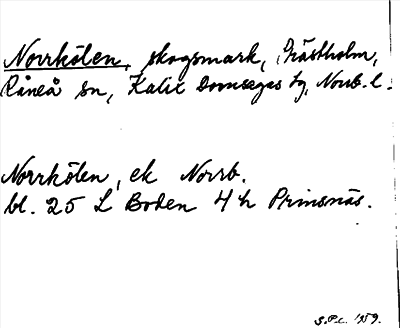 Norrkölen, skogsmark, Prästholm,
Råneå sn, Kalix Domsagas tg, Norrb. l.
Norrkölen, ek Norrb.
bl. 25 L Boden 4 h Prinsnäs.
S.P.c. 1959.